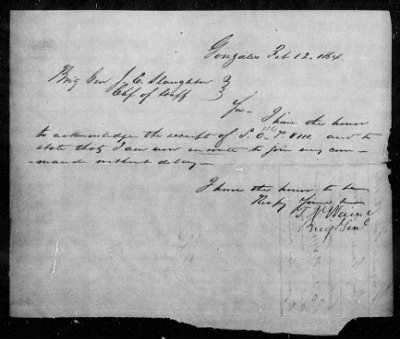 Gonzales Feb 12. 1864.
Brig Gen J. E. Slaughter
Chf of Staff
Sir - I have the honor
to acknowledge the receipt of S. O. and to
state that I am now en route to join my com-
mand without delay -
I have the honor to be
Respy Yours
Brig Genl